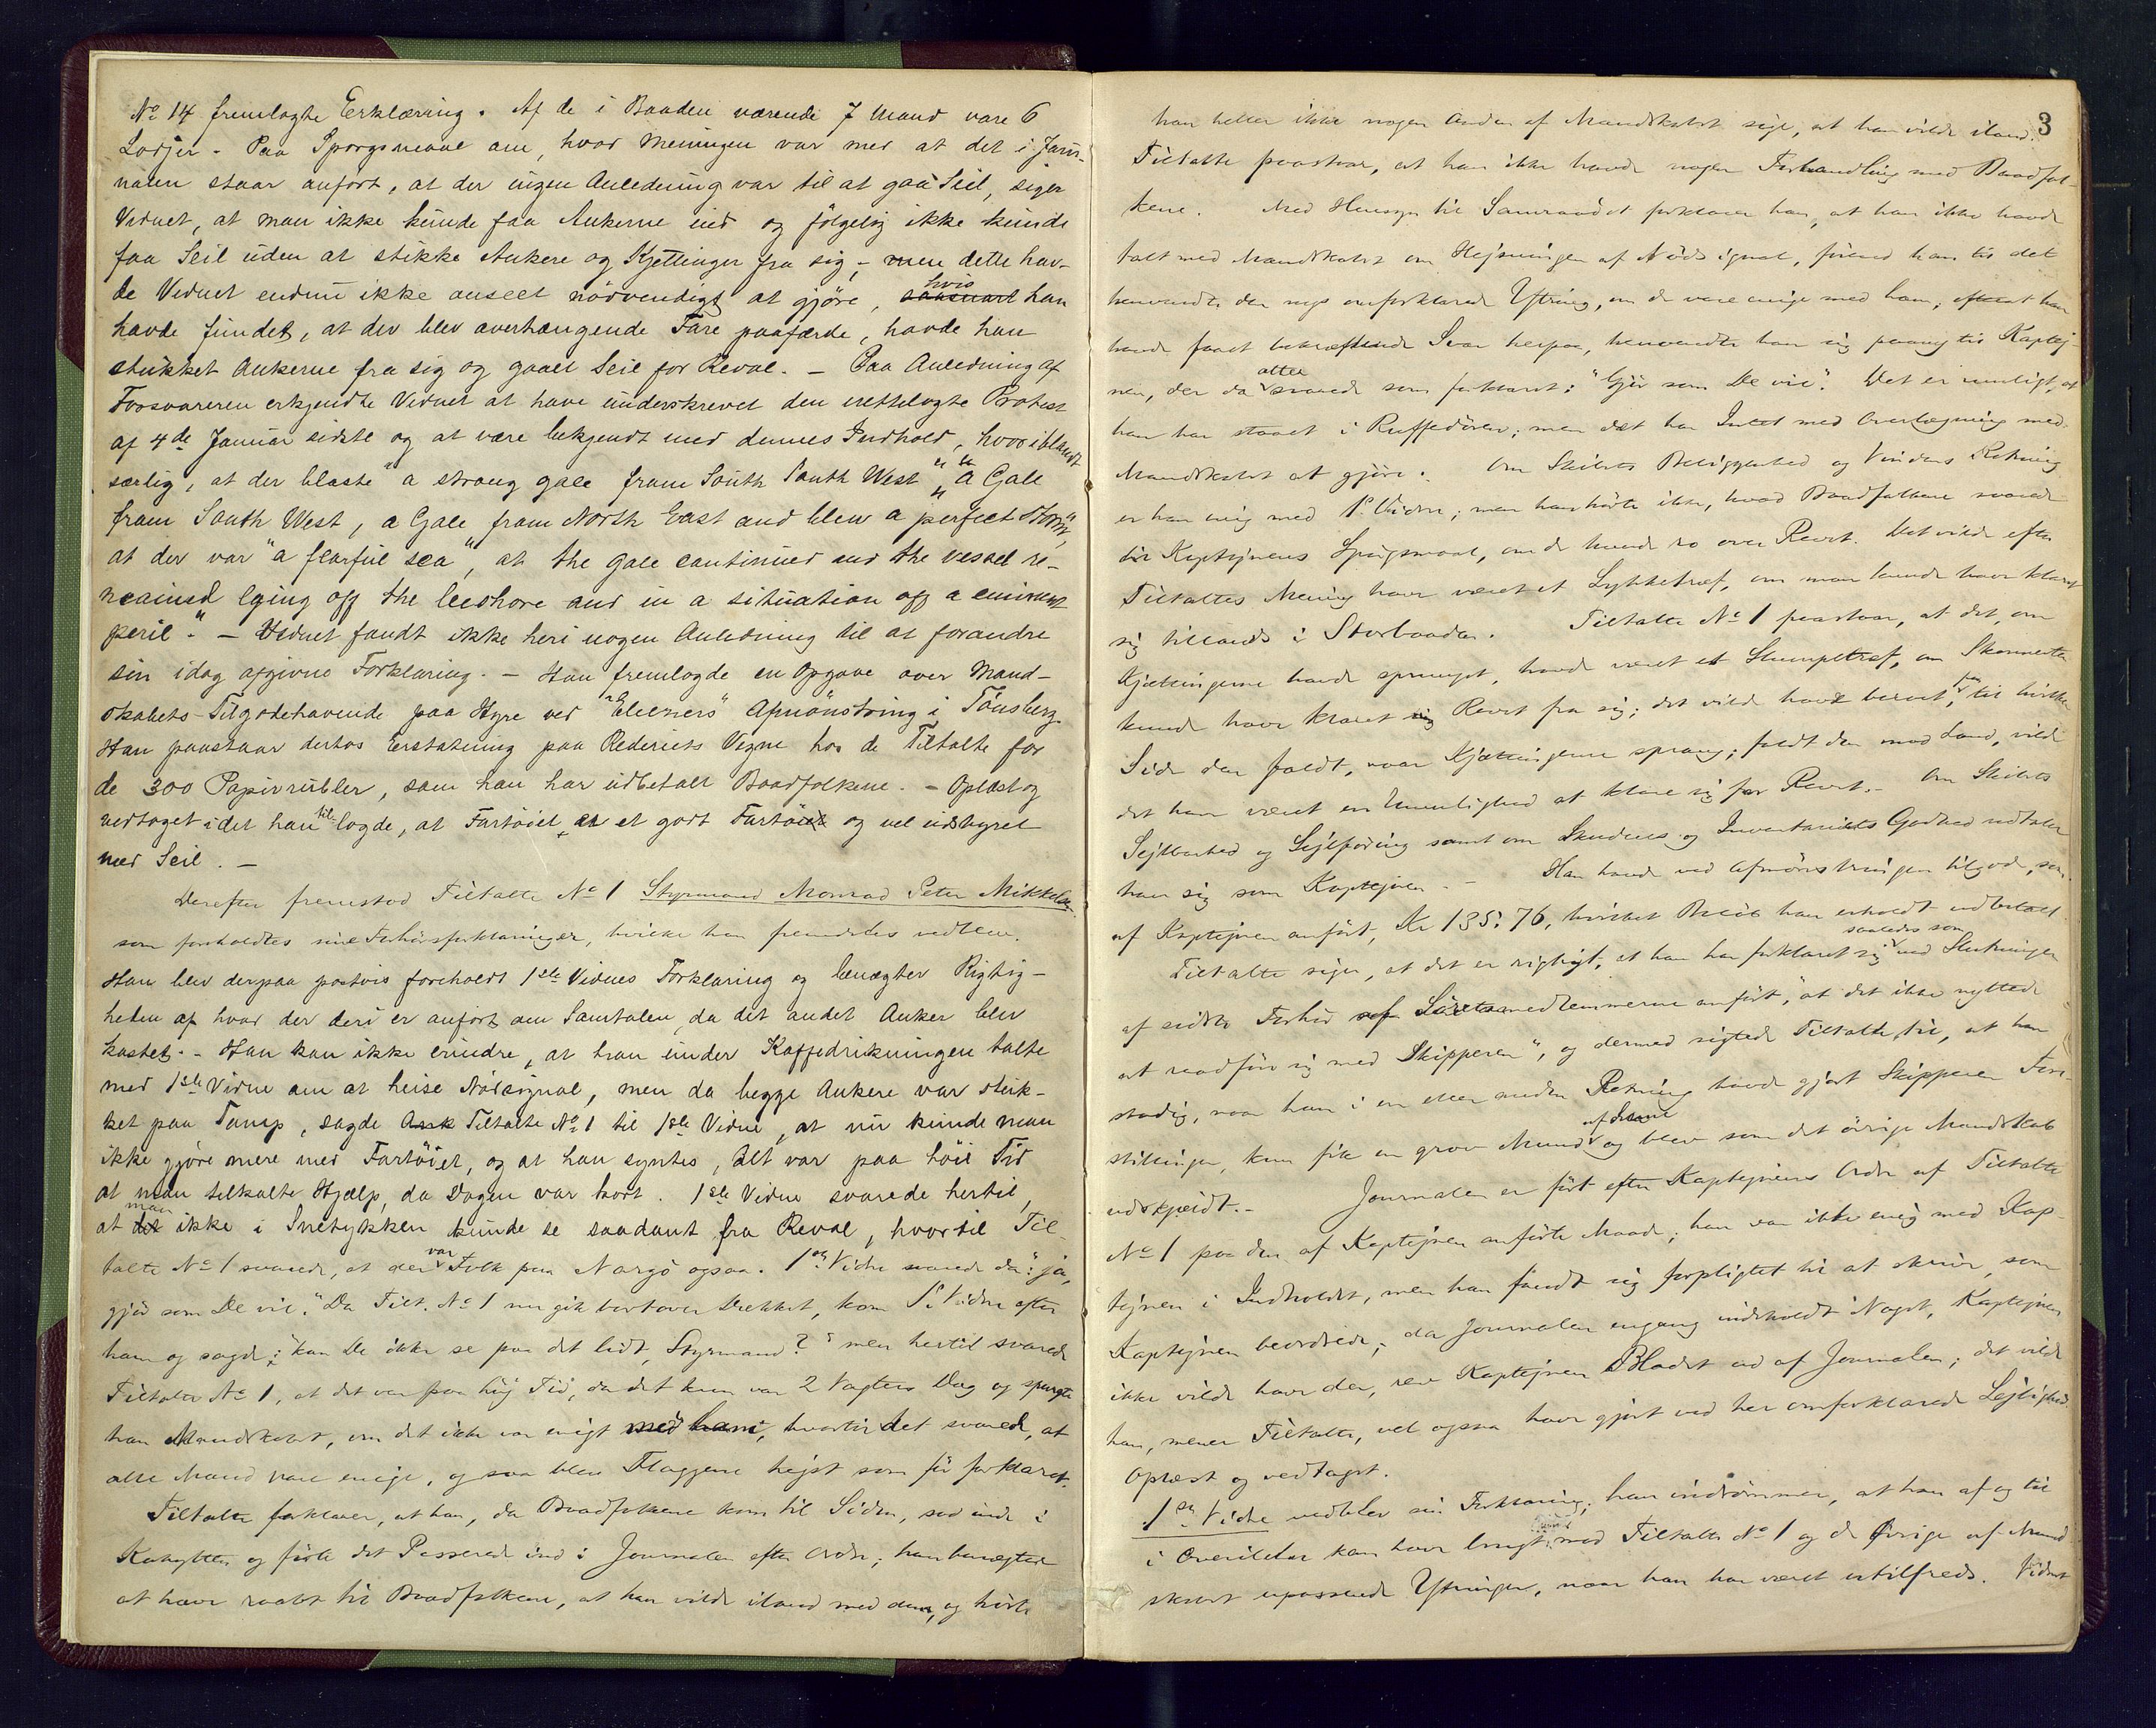 No 14 fremlagte Erklæring. Af de i Baaden værende 7 Mand vare 6
Lodser. Paa Spørgsmaal om, hvad Meningen var med at det i Jour-
nalen staar anført, at der ingen Anledning var til at gaa Seil, siger
Vidnet, at man ikke kunde faa Ankerne ind og følgelig ikke kunde
faa Seil uden at stikke Ankere og Kjettinger fra sig, - men dette hav-
de Vidnet endnu ikke anseet nödvendigt at gjöre, hvis han
havde fundet, at der blev overhængende Fare paafærde, havde han
stukket Ankerne fra sig og gaaet Seil for Reval. - Paa Anledning af
Forsvareren erkjendte Vidnet at have underskrevet den rettelagte Protest
af 4de Januar sidste og at være bekjendt med dennes Indhold, hvoriblandt
særlig, at der blæste "a strong gale from South South West", "a Gale
from South West, a Gale from North East and blew a perfect Storm",
at der var "a fearful sea", at the gale continued and the vessel re-
meained lying off the leeshore and in a situation off a eminent
peril". - Vidnet fandt ikke heri nogen Anledning til at forandre
sin idag afgivne Forklaring. - Han fremlagde en Opgave over Mand-
skabets Tilgodehavende paa Hyre ved "Eleezers" Afmönstring i Tönsberg.
Han paastaar derhos Erstatning paa Rederiets Vegne hos de Tiltalte for
de 300 Papirrubler, som han har udbetalt Baadfolkene. - Oplæst og
vedtaget idet han tillagde, at Fartöiet er et godt Fartöi og vel udstyret
med Seil. -
Derefter fremstod Tiltalte No 1 Styrmand Monrad Peter Mikkelsen
som foreholdtes sine Forhørsforklaringer, hvilke han fremdeles vedtog.
Han blev derpaa postvis foreholdt 1ste Vidnes Forklaring og benægter Rigtig-
heden af hvad der deri er anført om Samtalen, da det andet Anker blev
kastet. - Han kan ikke erindre, at han under Kaffedrikningen talte
med 1ste Vidne om at heise Nödsignal, men da begge Ankere var stuk-
ket paa Tamp, sagde Tiltalte No 1 til 1ste Vidne, at nu kunde man
ikke gjöre mere med Fartöiet, og at han syntes, det var paa höi Tid
at man tilkaldte Hjælp, da Dagen var kort. 1ste Vidne svarede hertil,
at man ikke i Snetykken kunde se saadant fra Reval, hvortil Til-
talte No 1 svarede, at der var Folk paa Nargö ogsaa. 1ste Vidne svarede da: "ja,
gjör som De vil." Da Tilt. No 1 nu gik bortover Dækket, kom 1ste Vidne efter
ham og sagde: "kan De ikke se paa det lidt, Styrmand?" men hertil svarede
Tiltalte No 1, at det var paa høj Tid, da det kun var 2 Vagters Dag og spurgte
han Mandskabet, om det ikke var enigt med ham, hvortil det svarede, at
alle Mand vare enige, og saa blev Flaggene hejst som för forklaret.
Tiltalte forklarer, at han, da Baadfolkene kom til Siden, sad inde i
Kahytten og førte det Passerede ind i Journalen efter Ordre; han benægtede
at have raabt til Baadfolkene, at han vilde iland med dem, og hørte
3
han heller ikke nogen Anden af Mandskabet sige, at han vilde iland.
Tiltalte paastaar, at han ikke havde nogen Forhandling med Baadfol-
kene. Med Hensyn til Samraadet forklarer han, at han ikke havde
talt med Mandskabet om Hejsningen af Nödsignal, förend han til det
henvendte den nys omforklarede Ytring, om de vare enige med ham, efterat han
havde faaet bekræftende Svar herpaa, henvendte han sig paany til Kaptej-
nen, der da atter svarede som forklaret: "Gjør som De vil". Det er muligt, at
han har staaet i Ruffedøren; men det har Intet med Overlægning med
Mandskabet at gjøre. Om Skibets Beliggenhed og Vindens Retning
er han enig med 1ste Vidne; men han hørte ikke, hvad Baadfolkene svarede
til Kaptejnens Spørgsmaal, om de kunde ro over Revet. Det vilde efter
Tiltaltes Mening have været et Lykketræf, om man kunde have klaret
sig tillands i Storbaaden. Tiltalte No 1 paastaar, at det, om
Kjættingerne havde sprunget, havde været et Slumpetræf, om Skonnerten
kunde have klaret Revet fra sig; det vilde have beroet paa, til hvilken
Side den faldt, naar Kjættingerne sprang; faldt den mod Land, vilde
det have været en Umulighed at klare sig for Revet. - Om Skibets
Sejlbarhed og Sejlføring samt om Skudens og Inventariets Godhed udtaler
han sig som Kaptejnen. - Han havde ved Afmönstringen tilgode, som
af Kaptejnen anført, Kr 135.76, hvilket Beløb han erholdt udbetalt.
Tiltalte siger, at det er rigtigt, at han har forklaret sig saaledes som ved Slutningen
af sidste Forhør af Søretsmedlemmerne anført, "at det ikke nyttede
at raadføre sig med Skipperen", og dermed sigtede Tiltalte til, at han
stadig, naar han i en eller anden Retning havde gjort Skipperen Fore-
stillinger, kun fik en grov Mund af ham og blev som det øvrige Mandskab
udskjældt. - Journalen er ført efter Kaptejnens Ordre af Tiltalte
No 1 paa den af Kaptejnen anførte Maade; han var ikke enig med Kap-
tejnen i Indholdet, men han fandt sig forpligtet til at skrive, som
Kaptejnen beordrede; da Journalen engang indeholdt Noget, Kaptejnen
ikke vilde have der, rev Kaptejnen Bladet ud af Journalen; det vilde
han, mener Tiltalte, vel ogsaa have gjort ved her omforklarede Lejlighed.
Oplæst og vedtaget.
1ste Vidne vedblev sin Forklaring; han indrømmer, at han af og til
i Overilelse kan have brugt mod Tiltalte No 1 og de Øvrige af Mand
skabet upassende Ytringer, naar han har været utilfreds. Vidnet